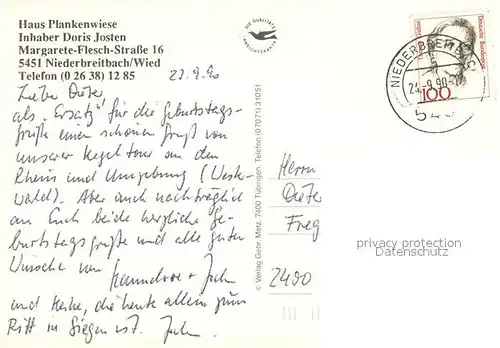 Haus Plankenwiese
Inhaber Doris Josten
Margarete-Flesch-Straße 16
5451 Niederbreitbach/Wied
Telefon (0 26 38) 12 85
23.9.90
Liebe
als „Ersatz“ für die Geburtstags-
grüße einen schönen Gruß von
unserer Kegeltour an den
Rhein und Umgebung (Wester-
wald). Aber auch nachträglich
an Euch beide herzliche Ge-
burtstagsgrüße und alle guten
Wünsche von Hannelore +
und Heike, die heute allein zum
Ritt in Siegen ist.
DIE QUALITÄTS
ANSICHTSKARTE
© Verlag Gebr. Metz, 7400 Tübingen, Telefon (07071) 31051
Deutsche Bundespost
100
NIEDERBREITBACH
24.-9.90
54
Herrn
Freg
2400
privacy protection
Datenschutz